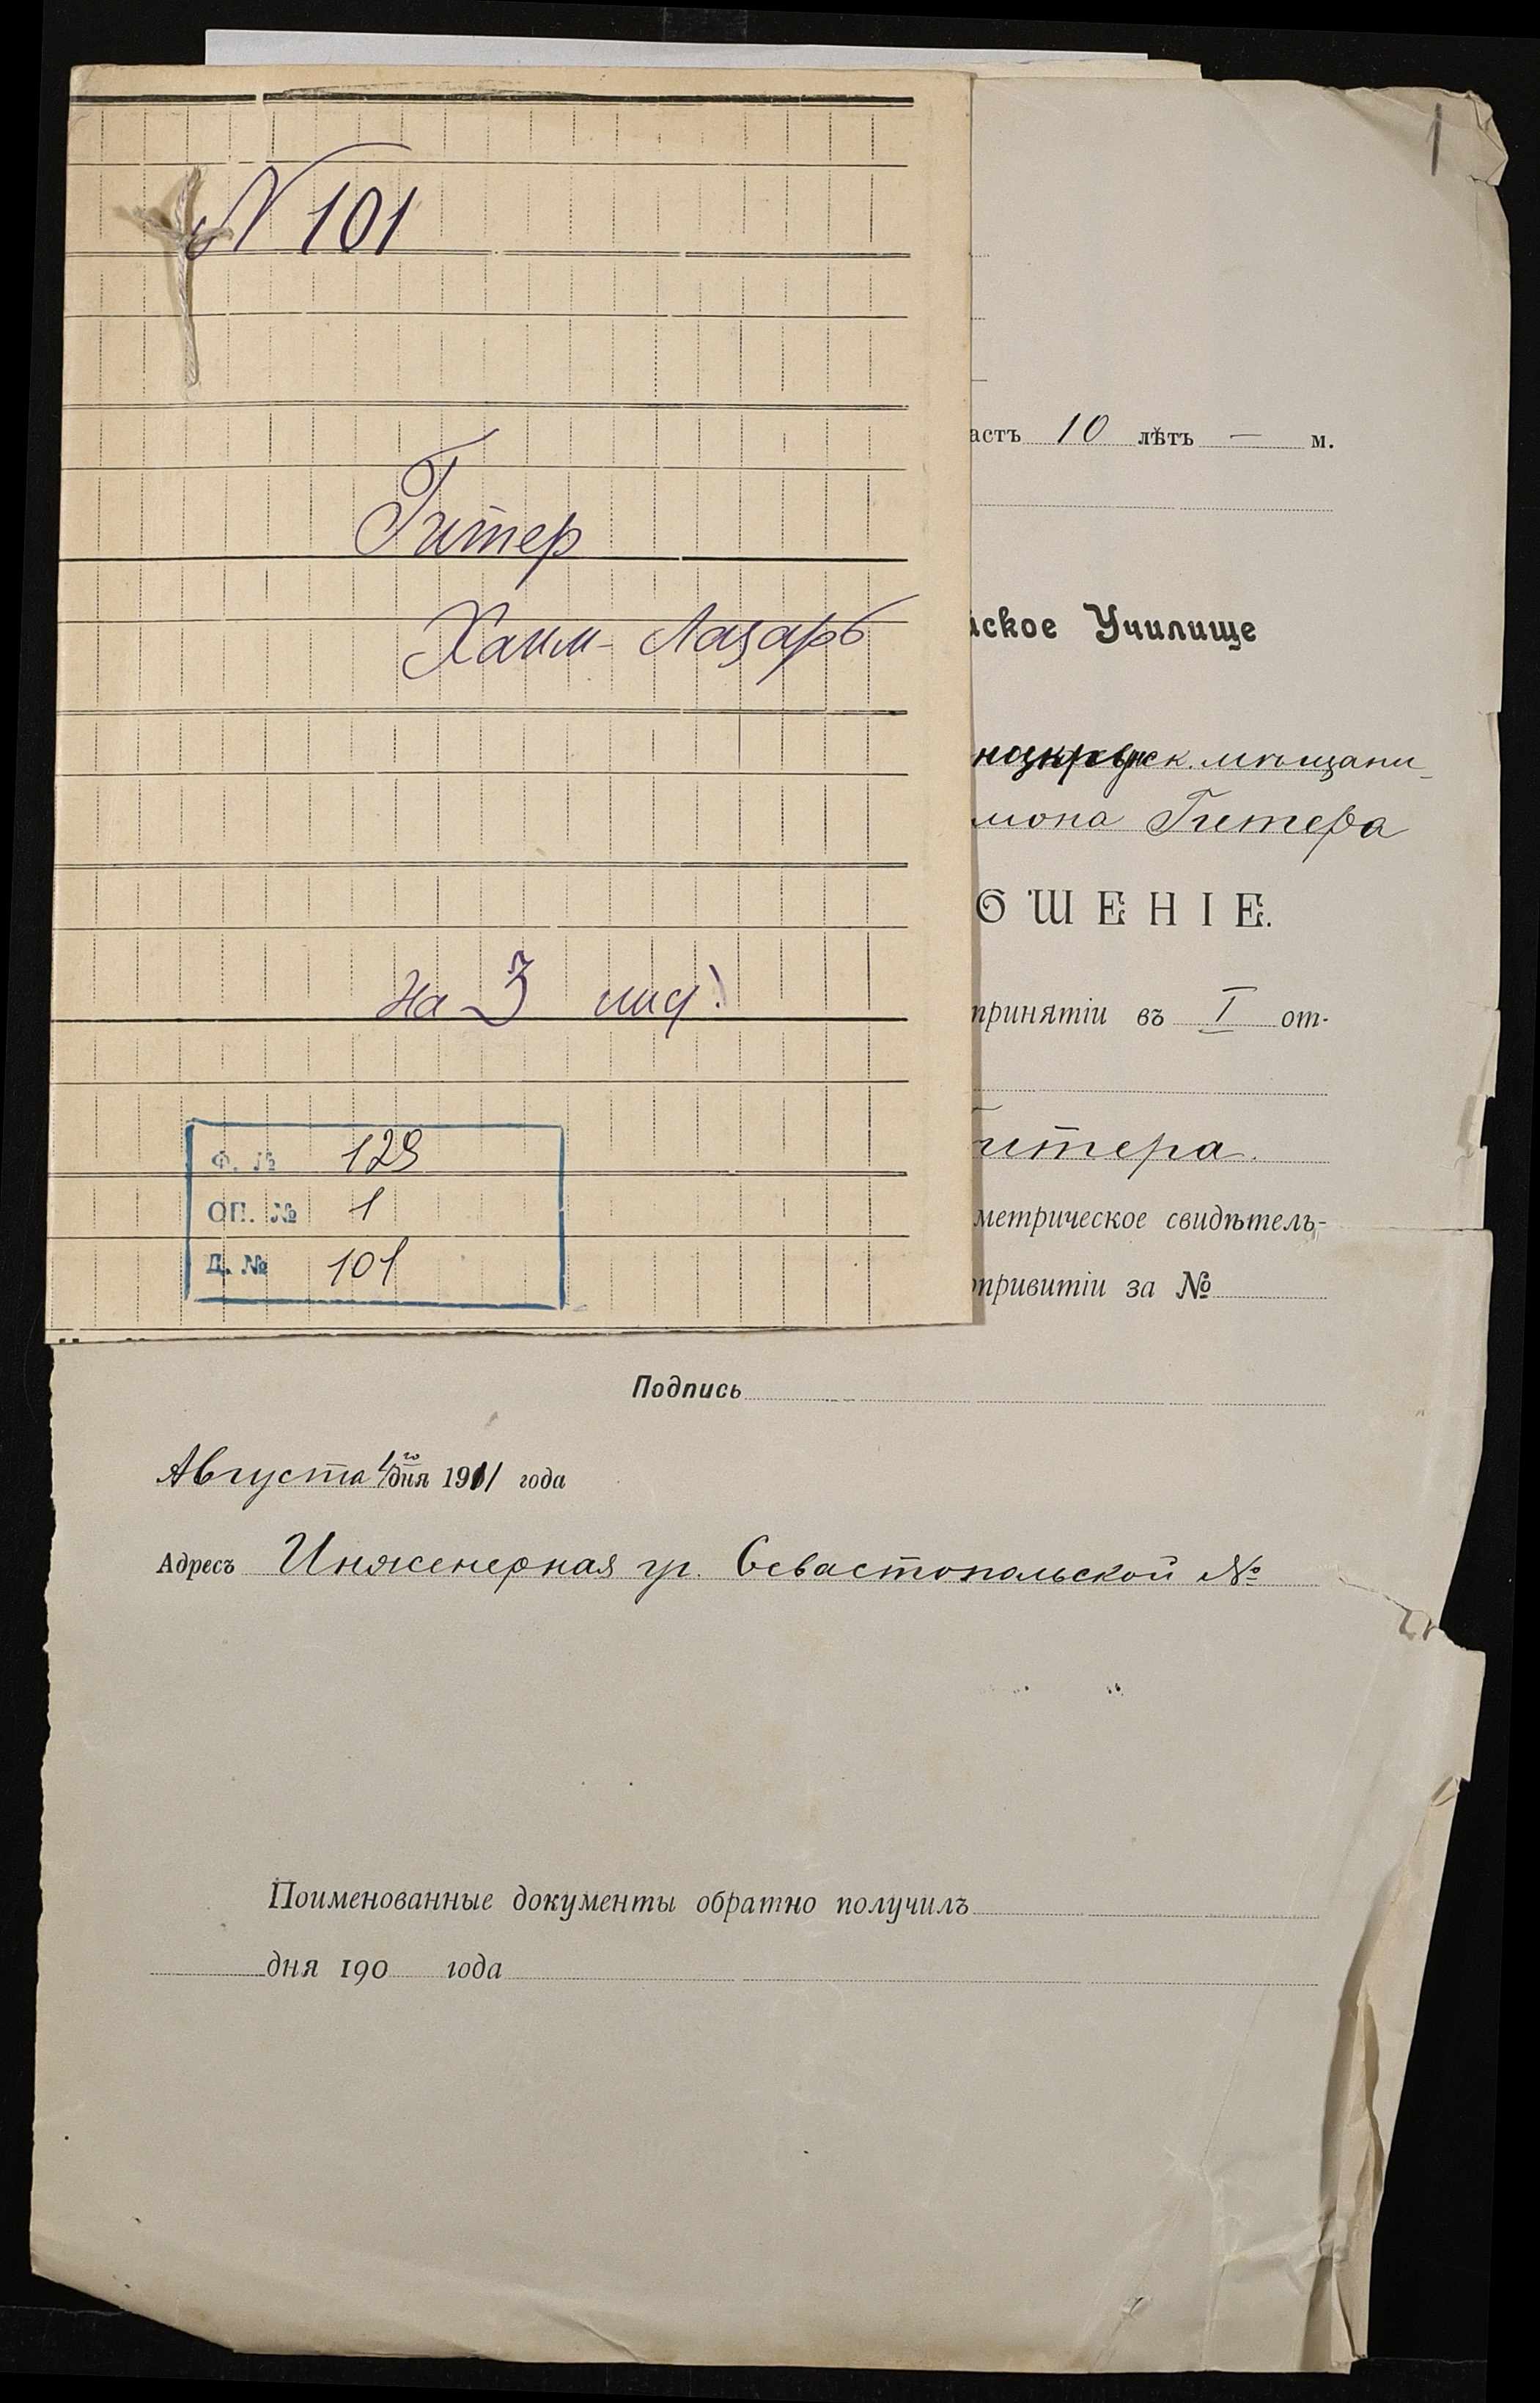 N 101
Гитер
Хаим-Лазарь
на 3 лид.
Ф. № 129
ОП. № 1
Д. № 101
1
астъ 10 лѣтъ — м.
йское Училище
ск. мѣщани-
мона Гитера
ОШЕНІЕ.
принятіи въ I от-
итера.
метрическое свидѣтель-
опривитіи за №
Подпись
Августа 1го дня 1911 года
Адресъ Инженерная уг. Севастопольской №
Поименованные документы обратно получилъ
дня 190 года